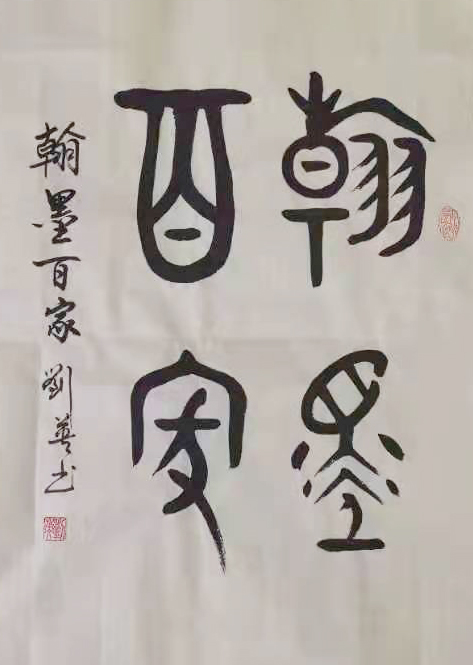 翰墨
百家
翰墨百家 劉英书